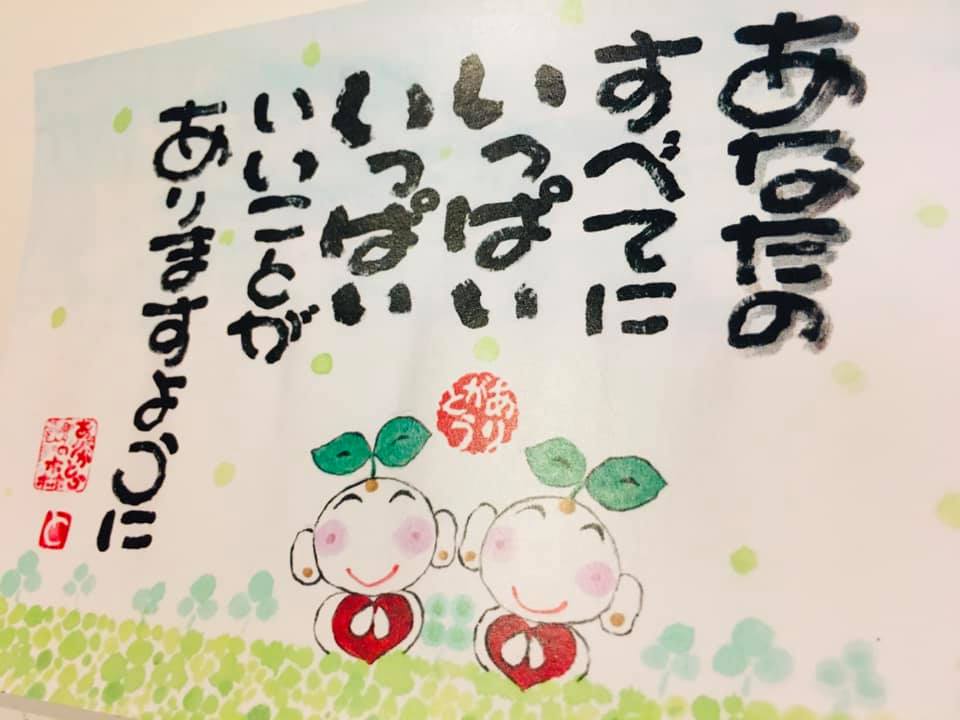 あなたの
すべてに
いっぱい
いっぱい
いいことが
ありますように
ありがとう